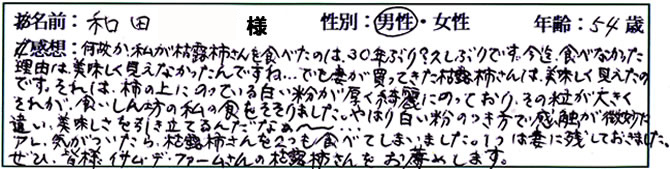 お名前：和田 様 性別：男性・女性 年齢：54歳
ご感想：何故か、私が枯露柿さんを食べたのは、30年ぶり？久しぶりです。今迄、食べなかった
理由は、美味しく見えなかったんですね…でも妻が買ってきた枯露柿さんは、美味しく見えたの
です。それは、柿の上にのっている白い粉が厚く綺麗にのっており、その粒が大きく
それが、食いしん坊の私の食をそそりました。やはり白い粉のつき方で、感触が微妙に
違い、美味しさを引き立てるんだなぁ〜…
アレ、気がついたら、枯露柿さんを2つも食べてしまいました。1つは妻に残しておきました。
ぜひ、皆様、イサム・デ・ファームさんの枯露柿さんをお薦めします。